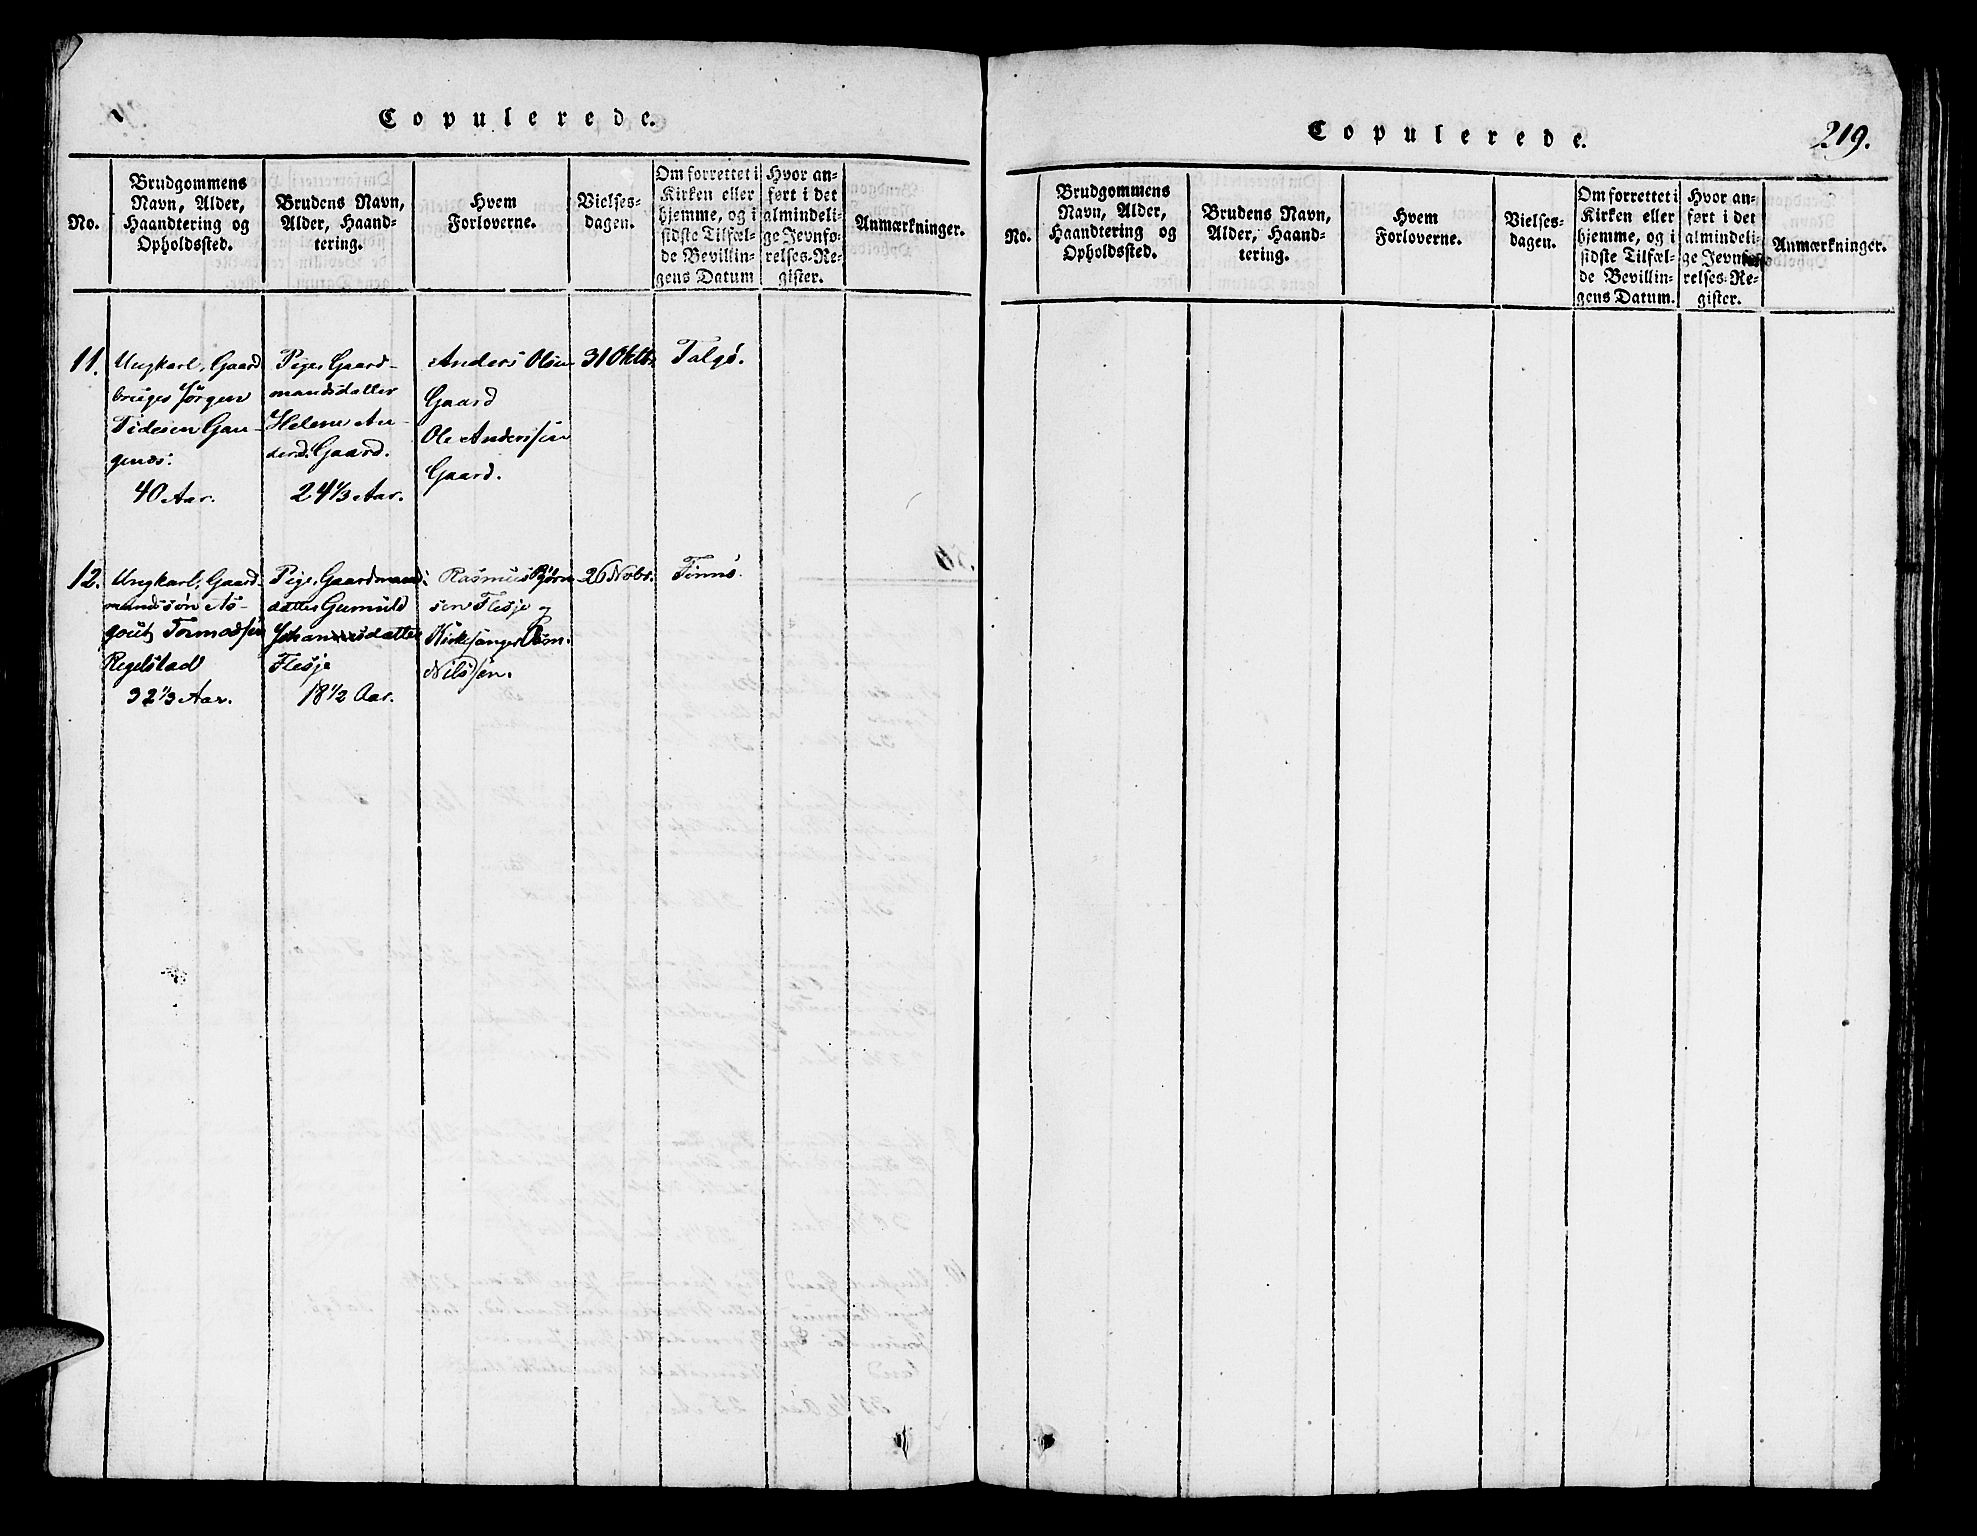 Copulerede.
No.
Brudgommens
Navn, Alder,
Haandtering og
Opholdssted.
Brudens Navn,
Alder, Haand-
tering.
Hvem
Forloverne.
Vielses-
dagen.
Om forrettet i
Kirken eller
hjemme, og i
sidste Tilfæl-
de Bevillin-
gens Datum
Hvor an-
ført i det
almindeli-
ge Jevnfø-
relses-Re-
gister.
Anmærkninger.
11.
Ungkarl, Gaard
bruger Jørgen
Tidesen Gan-
genæs.
40 Aar.
Pige, Gaard-
mandsdatter
Helene An-
dersd. Gaard.
24 1/3 Aar.
Anders Olsen
Gaard
Ole Anderssen
Gaard.
31 Oktbr.
Talgø.
12.
Ungkarl, Gaard-
mandssøn As-
gout Tormodsen
Regelstad
32 1/3 Aar.
Pige, Gaardmands
datter Gunuld
Johannesdatter
Flesje
18 1/2 Aar.
Rasmus Bjørn
sen Flesje og
Kirkesanger
Nilssen.
26 Nobr.
Finnø.
Copulerede.
219.
No.
Brudgommens
Navn, Alder,
Haandtering og
Opholdssted.
Brudens Navn,
Alder, Haand-
tering.
Hvem
Forloverne.
Vielses-
dagen.
Om forrettet i
Kirken eller
hjemme, og i
sidste Tilfæl-
de Bevillin-
gens Datum.
Hvor an-
ført i det
almindeli-
ge Jevnfø-
relses-Re-
gister.
Anmærkninger.